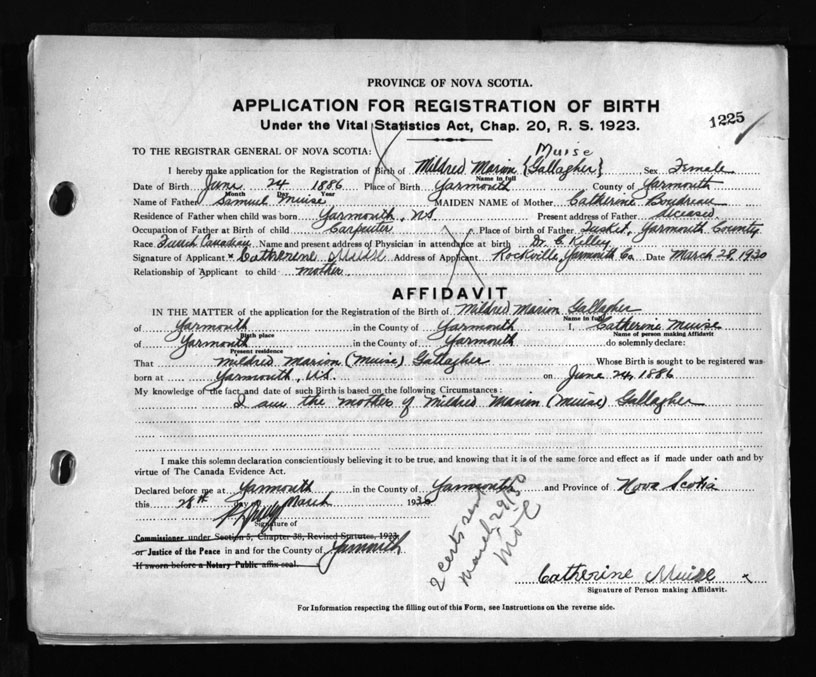 PROVINCE OF NOVA SCOTIA.
APPLICATION FOR REGISTRATION OF BIRTH
1225
Under the Vital Statistics Act, Chap. 20, R. S. 1923.
TO THE REGISTRAR GENERAL OF NOVA SCOTIA:
Muise
I hereby make application for the Registration of Birth of Mildred Marion {Gallagher} Sex Female
Name in full
Date of Birth June 24 1886 Place of Birth Yarmouth County of Yarmouth
Month Day Year
Name of Father Samuel Muise MAIDEN NAME of Mother Catherine Boudreau
Residence of Father when child was born Yarmouth, N.S. Present address of Father diceased
Occupation of Father at Birth of child Carpenter Place of birth of Father Tusket, Yarmouth County
Race French Canadian Name and present address of Physician in attendance at birth Dr. C. Kelley
Signature of Applicant x Catherine Muise Address of Applicant Rockville, Yarmouth Co. Date March 28, 1930
Relationship of Applicant to child mother
AFFIDAVIT
IN THE MATTER of the application for the Registration of the Birth of Mildred Marion Gallagher
Name in full
of Yarmouth in the County of Yarmouth I, Catherine Muise
Birth place Name of person making Affidavit
of Yarmouth in the County of Yarmouth do solemnly declare:
Present residence
That Mildred Marion (Muise) Gallagher Whose Birth is sought to be registered was
born at Yarmouth, N.S. on June 24, 1886
My knowledge of the fact and date of such Birth is based on the following Circumstances:
I am the mother of Mildred Marion (Muise) Gallagher
I make this solemn declaration conscientiously believing it to be true, and knowing that it is of the same force and effect as if made under oath and by
virtue of The Canada Evidence Act.
Declared before me at Yarmouth in the County of Yarmouth and Province of Nova Scotia
this 28th day of March 1930
Signature of
Commissioner under Section 5, Chapter 38, Revised Statutes, 1923
or Justice of the Peace in and for the County of Yarmouth
If sworn before a Notary Public affix seal.
2 certs sent
March 29/30
Catherine Muise x
Signature of Person making Affidavit.
For Information respecting the filling out of this Form, see Instructions on the reverse side.